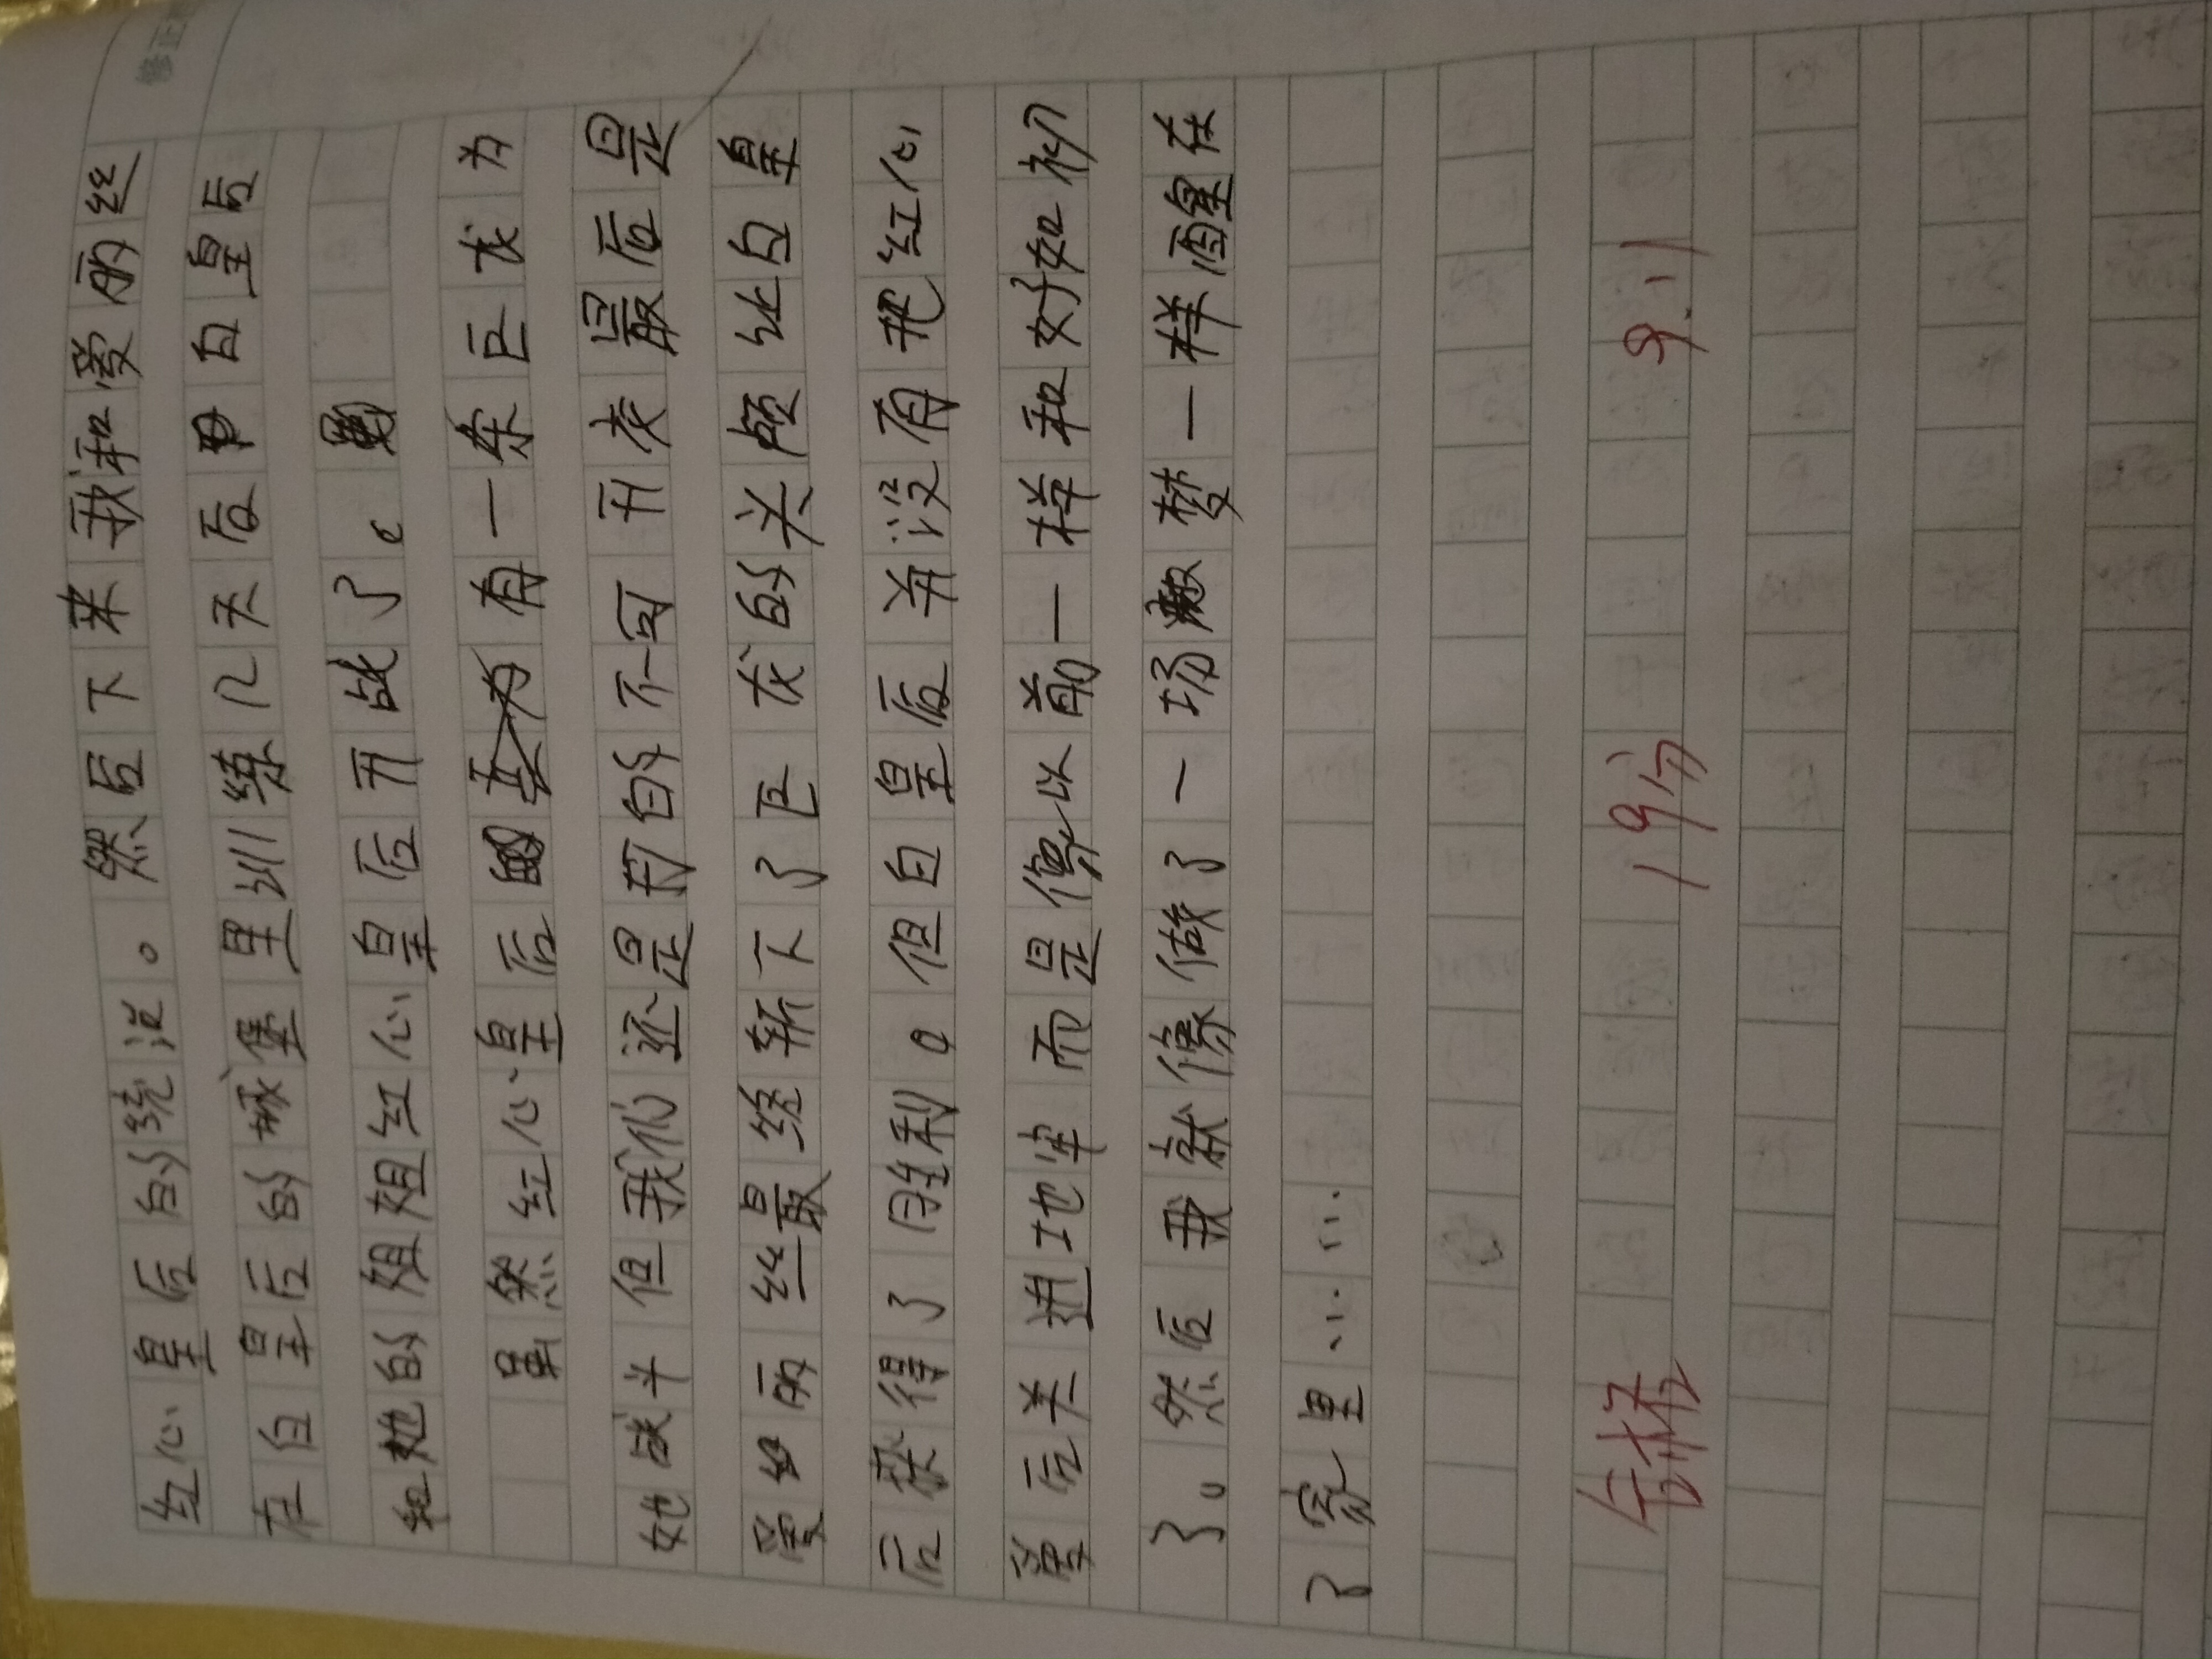 修正
红心皇后的统治。然后下来我和爱丽丝
在白皇后的城堡里训练几天后白皇后
和她的姐姐红心皇后开战了。
虽然红心皇后有一条巨龙为
她战斗但我们还是打的不可开交最后是
爱丽丝最终斩下了巨龙的头颅让白皇
后获得了胜利。但白皇后并没有把红心
皇后关进地牢而是像以前一样和好如初
了。然后我就像做了一场梦一样醒在
了家里……
台杯 19分 9.11